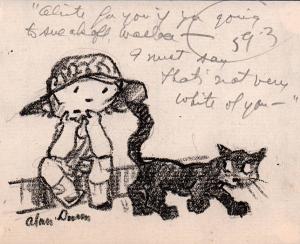 for you if you going
to sneak off
59-3
I must say
that's not very
white of you —"
Alan Dunn